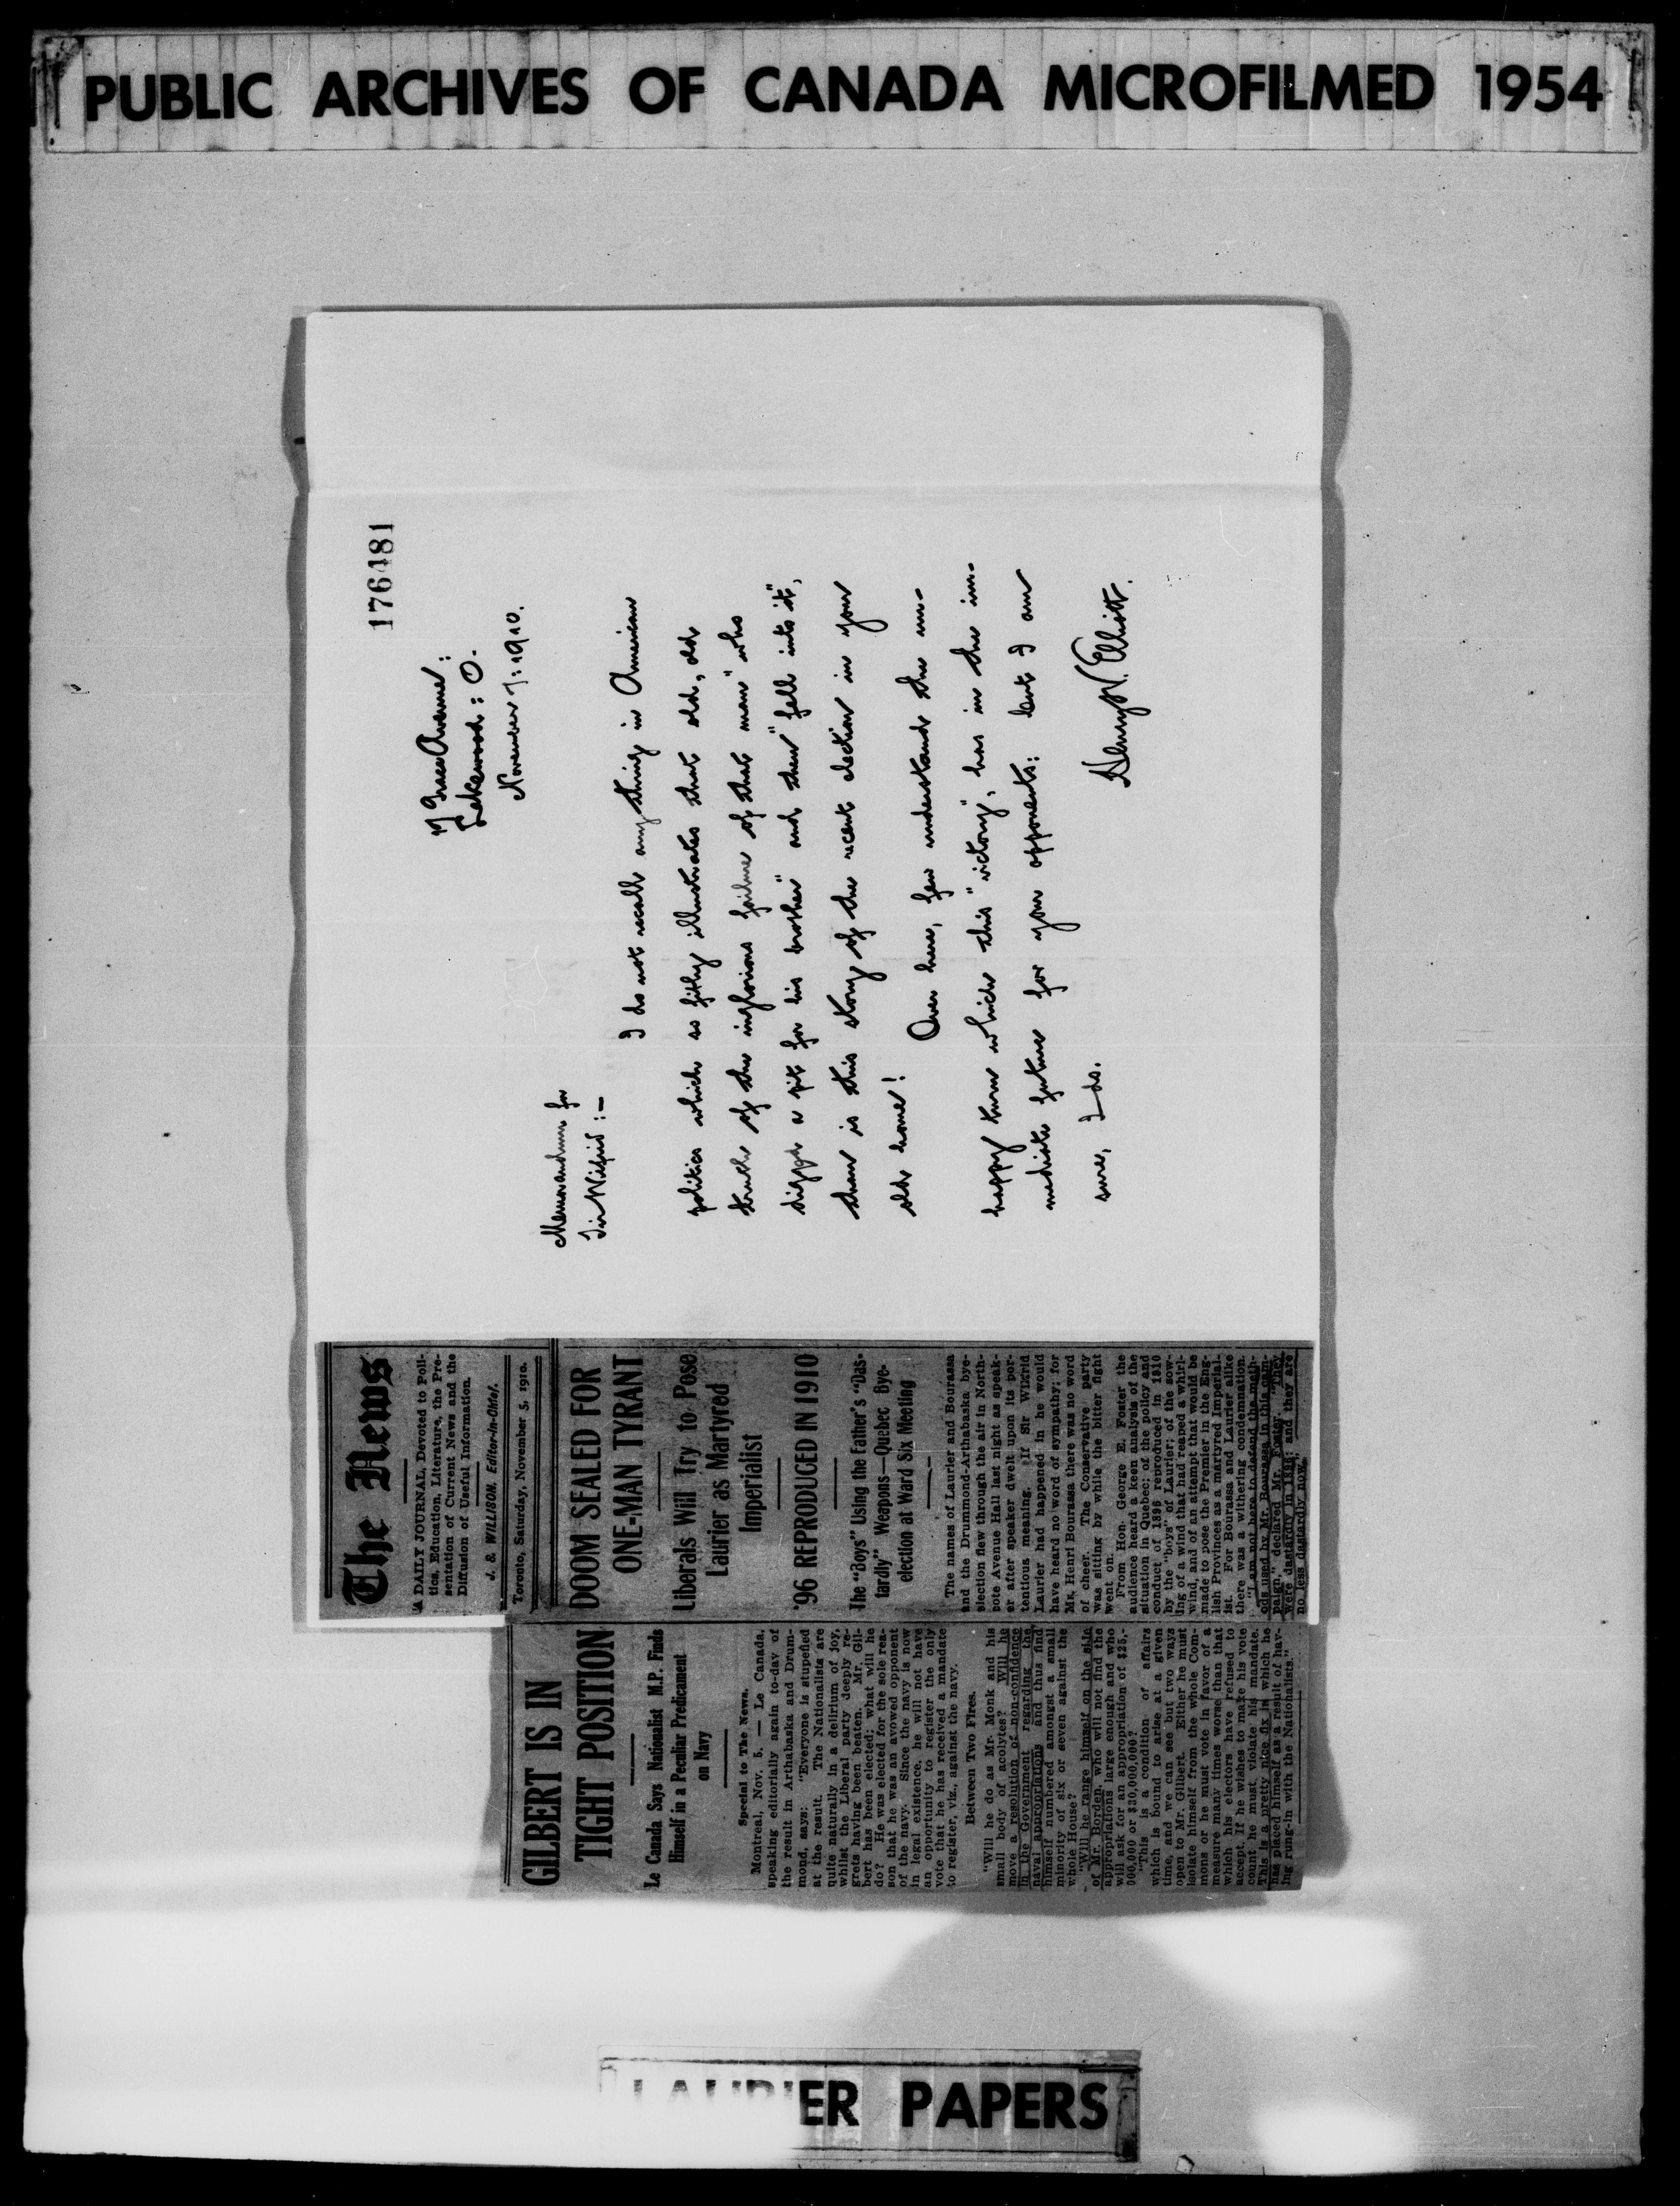 PUBLIC ARCHIVES OF CANADA MICROFILMED 1954
176481
17 Grace Avenue:
Lakewood: O.
November 7: 1910.
Memorandum for
Sir Wilfrid:—
I do not recall anything in American
politics which so fitly illustrates that old, old
truth of the inglorious failure of that man "who
digged a pit for his brother" and then "fell into it",
than is this story of the recent election in your
old home!
Over here, few understand the un-
happy turn which this "victory", has in the im-
mediate future for your opponents: but I am
sure, I do.
Henry W. Elliott.
The News
A DAILY JOURNAL, Devoted to Poli-
tics, Education, Literature, the Pre-
sentation of Current News and the
Diffusion of Useful Information.
J. S. WILLISON, Editor-in-Chief.
Toronto, Saturday, November 5, 1910.
DOOM SEALED FOR
ONE-MAN TYRANT
Liberals Will Try to Pose
Laurier as Martyred
Imperialist
'96 REPRODUCED IN 1910
The "Boys" Using the Father's "Das-
tardly" Weapons—Quebec Bye-
election at Ward Six Meeting
The names of Laurier and Bourassa
and the Drummond-Arthabaska bye-
election flew through the air in North-
cote Avenue Hall last night as speak-
er after speaker dwelt upon its por-
tentious meaning. If Sir Wilfrid
Laurier had happened in he would
have heard no word of sympathy; for
Mr. Henri Bourassa there was no word
of cheer. The Conservative party
was sitting by while the bitter fight
went on.
From Hon. George E. Foster the
audience heard a keen analysis of the
situation in Quebec; of the policy and
conduct of 1896 reproduced in 1910
by the "boys" of Laurier; of the sow-
ing of a wind that had reaped a whirl-
wind, and of an attempt that would be
made to pose the Premier in the Eng-
lish Provinces as a martyred Imperial-
ist. For Bourassa and Laurier alike
there was a withering condemnation.
"I am not here to defend the meth-
ods used by Mr. Bourassa in this cam-
paign," declared Mr. Foster. "They
were dastardly in 1896; and they are
no less dastardly now."
GILBERT IS IN
TIGHT POSITION
Le Canada Says Nationalist M.P. Finds
Himself in a Peculiar Predicament
on Navy
Special to The News.
Montreal, Nov. 5. — Le Canada,
speaking editorially again to-day of
the result in Arthabaska and Drum-
mond, says: "Everyone is stupefied
at the result. The Nationalists are
quite naturally in a delirium of joy,
whilst the Liberal party deeply re-
grets having been beaten. Mr. Gil-
bert has been elected; what will he
do? He was elected for the sole rea-
son that he was an avowed opponent
of the navy. Since the navy is now
in legal existence, he will not have
an opportunity to register the only
vote that he has received a mandate
to register, viz., against the navy.
Between Two Fires.
"Will he do as Mr. Monk and his
small body of acolytes? Will he
move a resolution of non-confidence
in the Government regarding the
naval appropriations and thus find
himself numbered amongst a small
minority of six or seven against the
whole House?
"Will he range himself on the side
of Mr. Borden, who will not find the
appropriations large enough and who
will ask for an appropriation of $25,-
000,000 or $30,000,000?
"This is a condition of affairs
which is bound to arise at a given
time, and we can see but two ways
open to Mr. Gilbert. Either he must
isolate himself from the whole Com-
mons or he must vote in favor of a
measure many times worse than that
which his electors have refused to
accept. If he wishes to make his vote
count he must violate his mandate.
This is a pretty nice fix in which he
has placed himself as a result of hav-
ing rung-in with the Nationalists."
LAURIER PAPERS